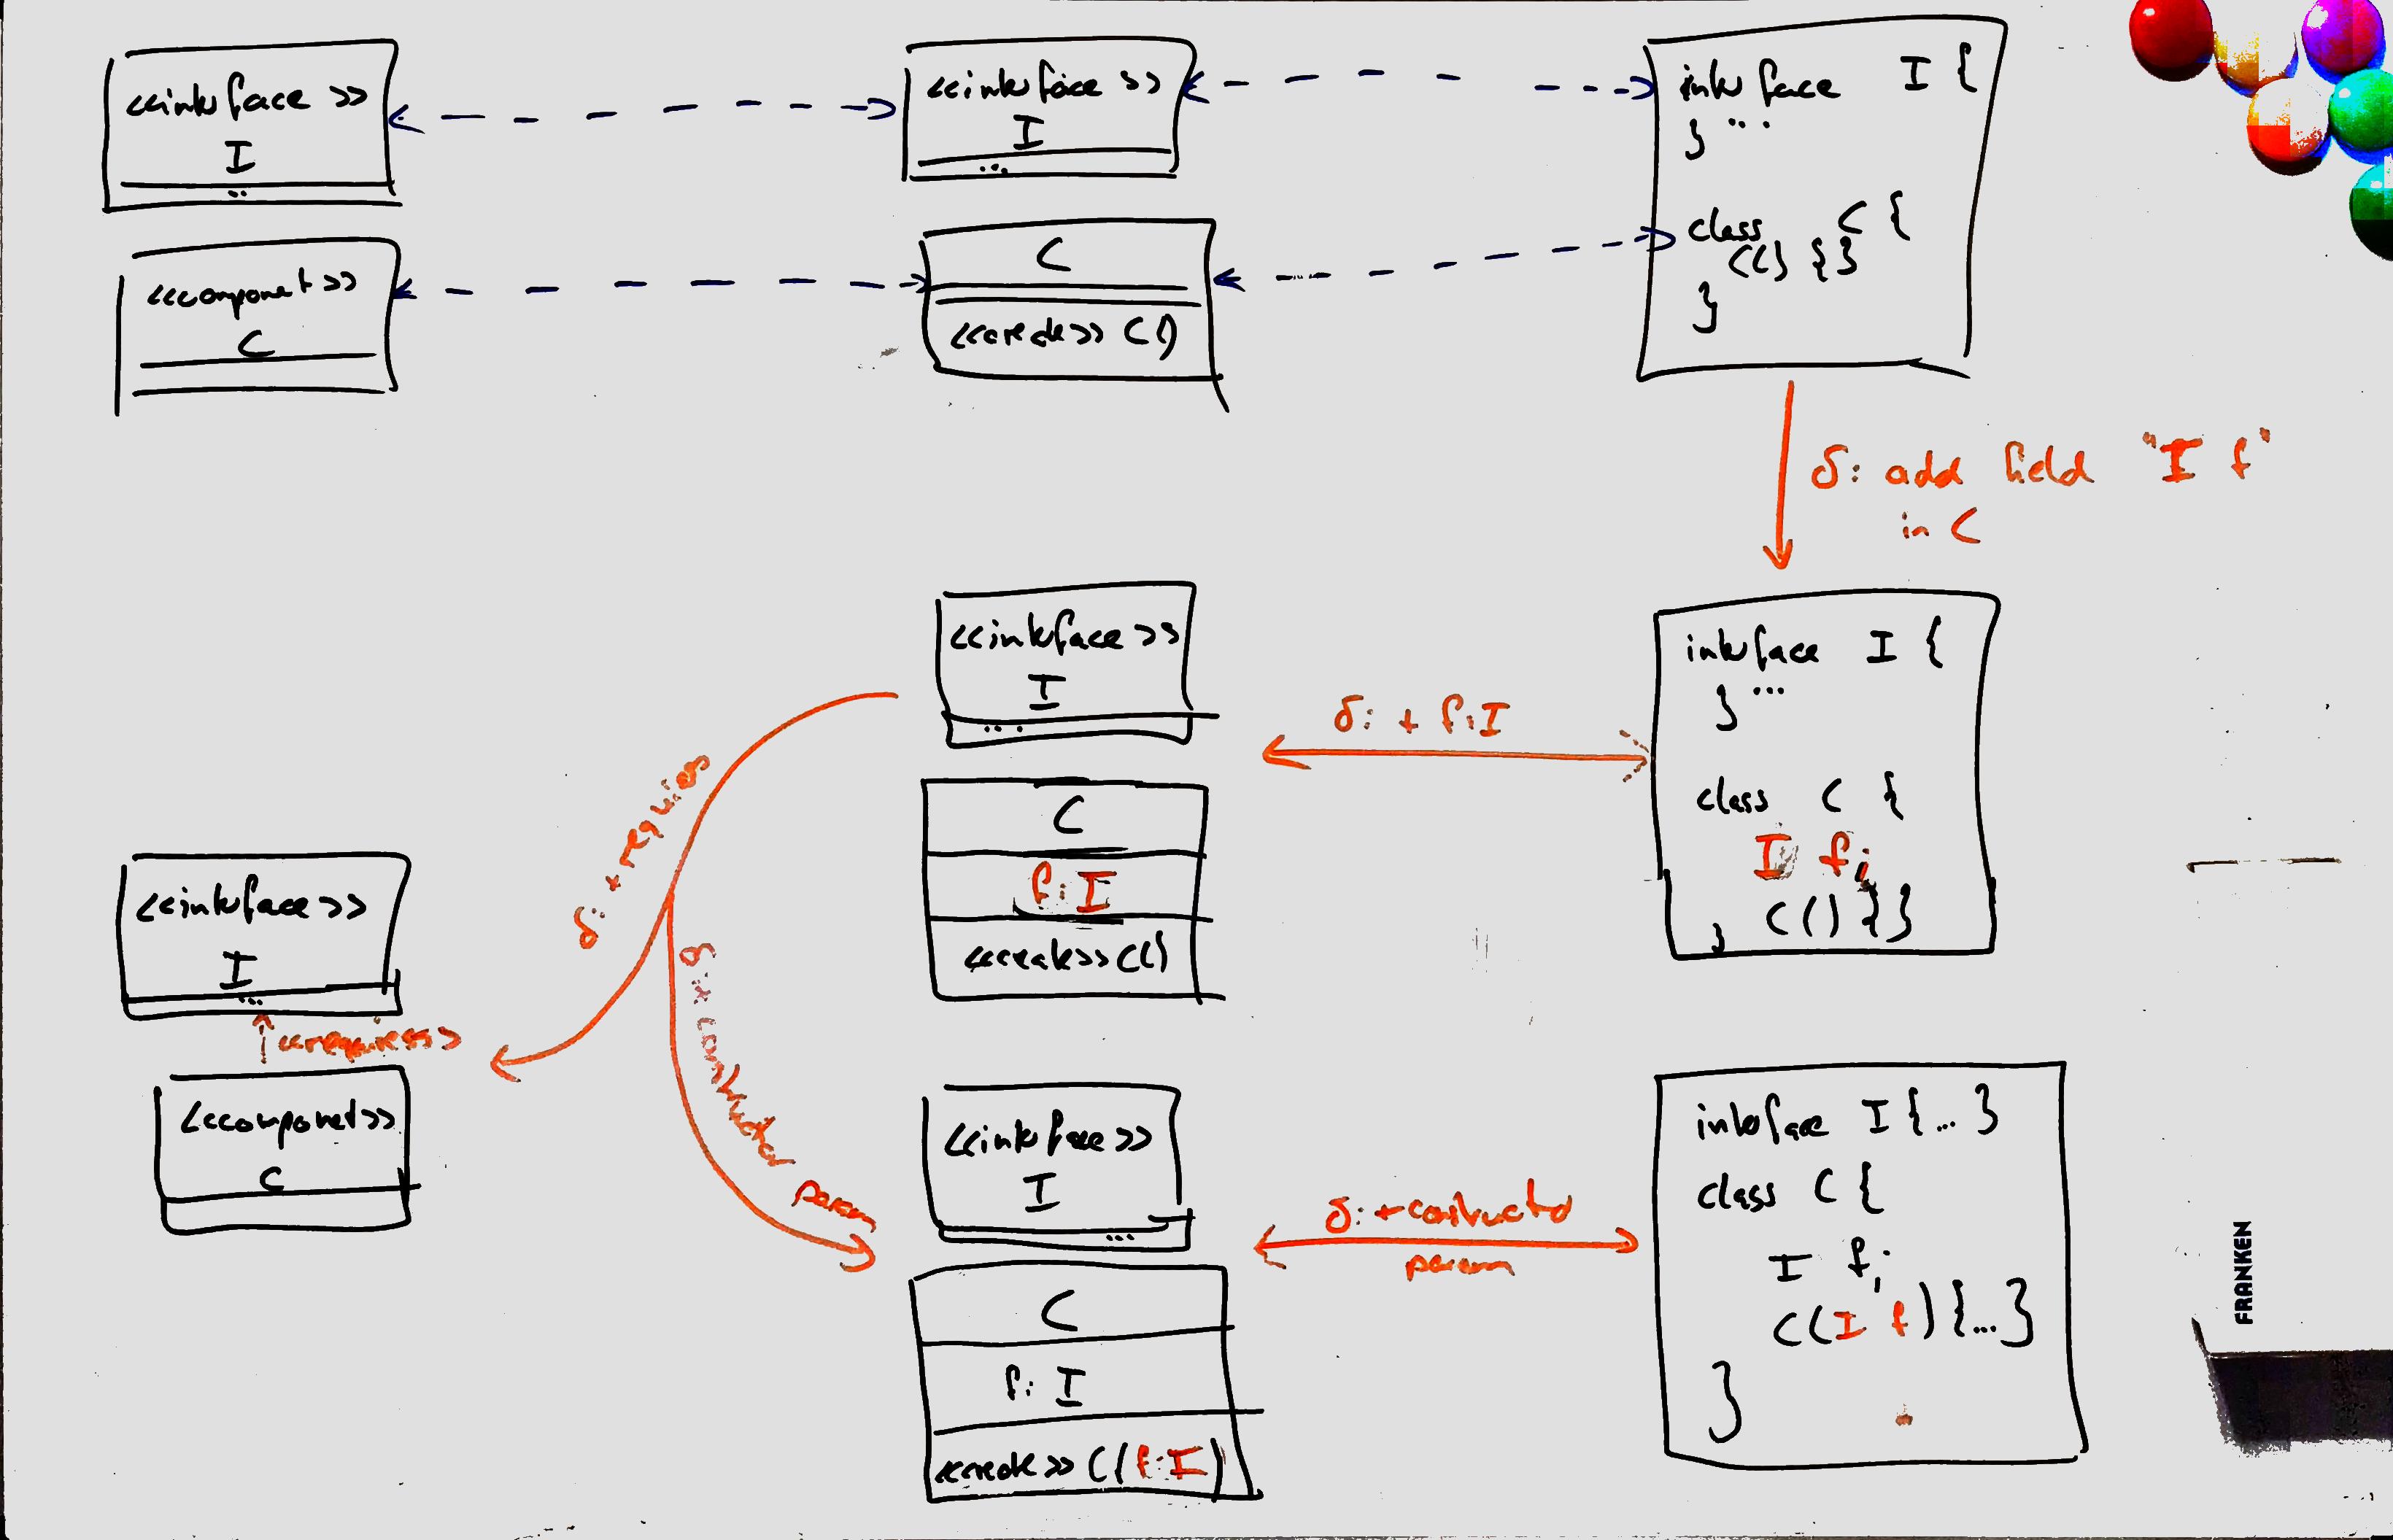 <<interface>>
I
...
<<component>>
C
<<interface>>
I
...
C
<<create>> C()
interface I {
} ...
class C {
C() {}
}
δ: add field "I f"
in C
<<interface>>
I
...
C
f: I
<<create>> C()
δ: + f: I
interface I {
} ...
class C {
I f;
C() {}
}
δ: + requires
<<interface>>
I
...
<<requires>>
<<component>>
C
δ: + constructor param
<<interface>>
I
...
C
f: I
<<create>> C(f: I)
δ: + constructor
param
interface I {...}
class C {
I f;
C(I f) {...}
}
FRANKEN